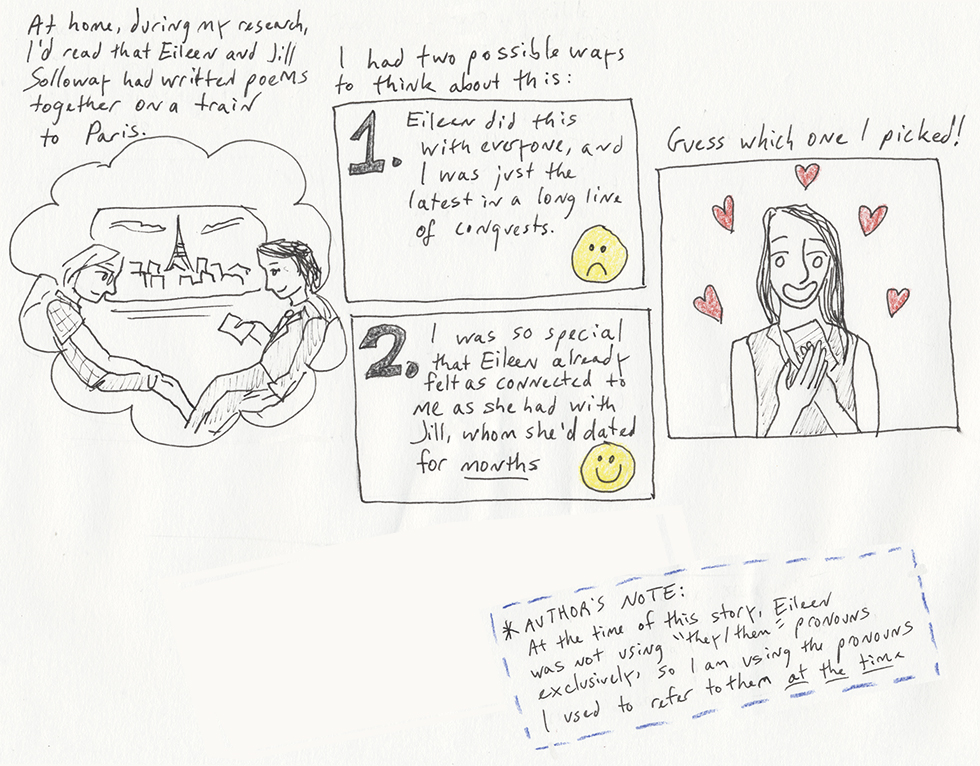 At home, during my research,
I'd read that Eileen and Jill
Solloway had writted poems
together on a train
to Paris.
I had two possible ways
to think about this:
1. Eileen did this
with everyone, and
I was just the
latest in a long line
of conquests.
2. I was so special
that Eileen already
felt as connected to
me as she had with
Jill, whom she'd dated
for months
Guess which one I picked!
*AUTHOR'S NOTE:
At the time of this story, Eileen
was not using "they/them" pronouns
exclusively, so I am using the pronouns
I used to refer to them at the time